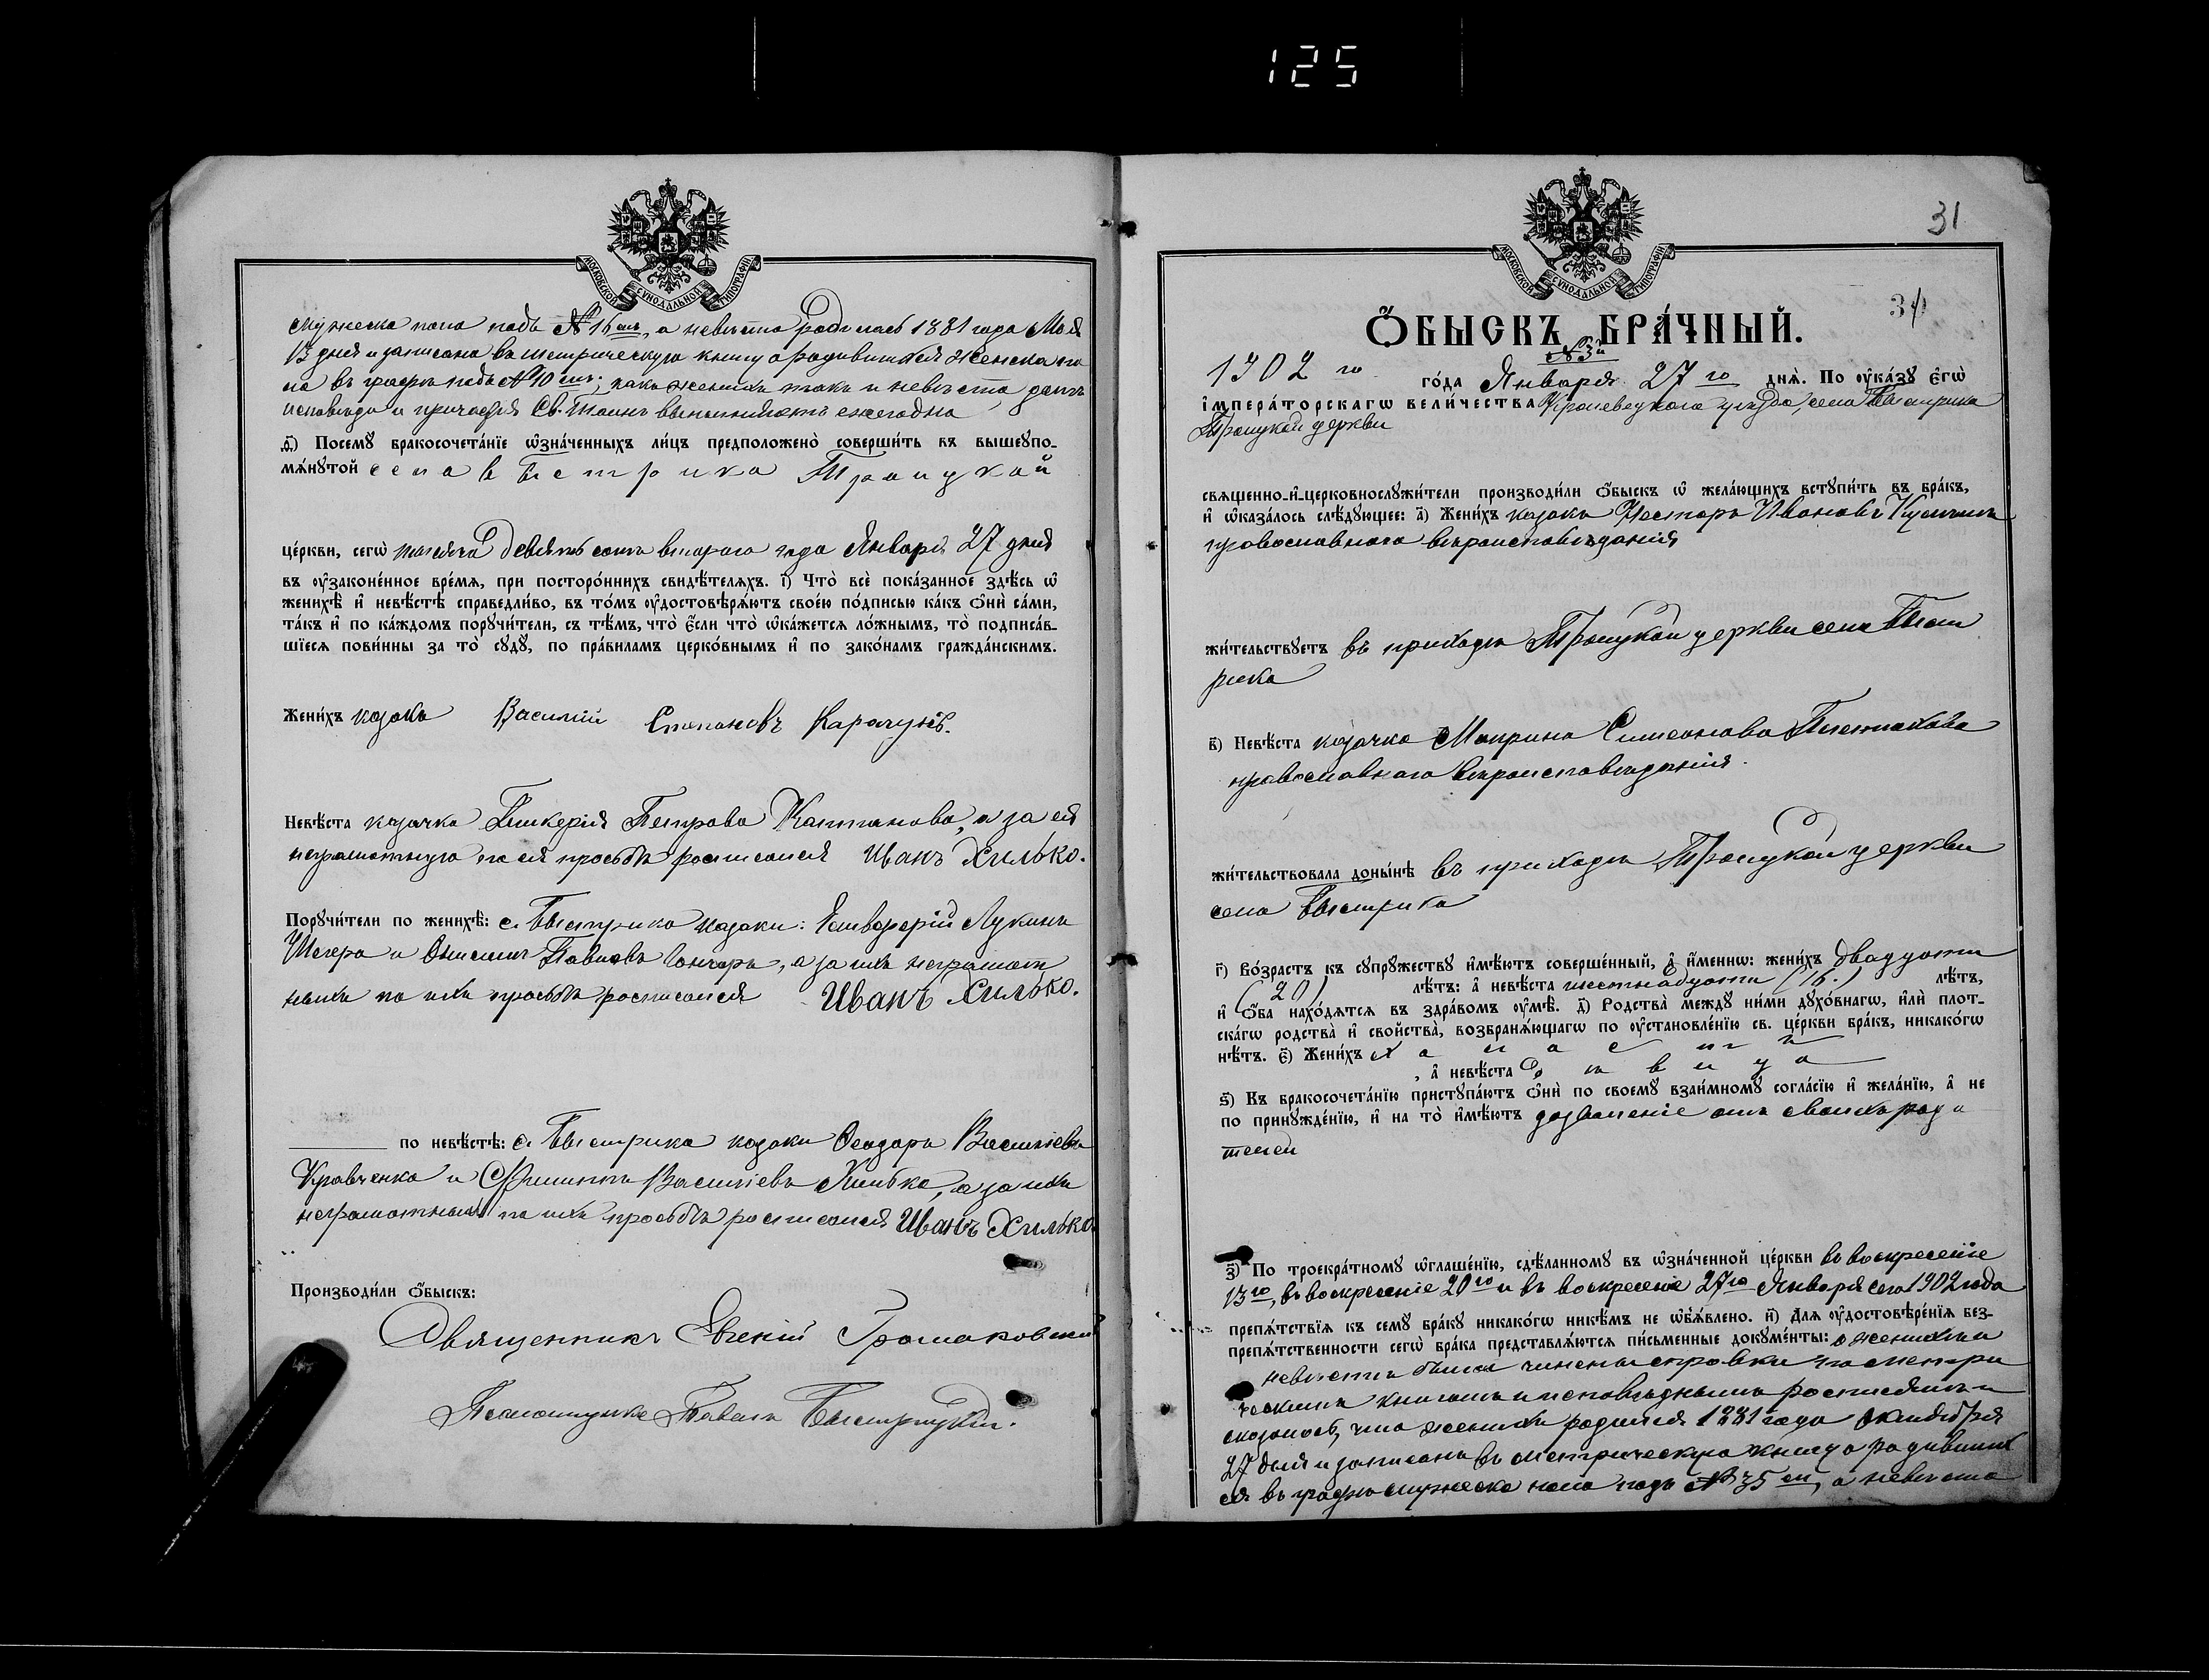 125
МОСКОВСКОЙ СѴНОДАЛЬНОЙ ТИПОГРАФІИ
мужеска пола подъ № 16 омъ, а невѣста родилась 1881 года Мая
13 дня и записана въ метрическую книгу о родившихся женска по
ла въ графѣ подъ № 10 омъ; какъ женихъ такъ и невѣста долгъ
исповѣди и причастія Св. Таинъ выполняютъ ежегодно
Посемꙋ бракосочета́нїе ѡ҆зна́ченныхъ ли́цъ предположено̀ соверши́ть въ вышеупо-
мѧ́нꙋтой села Быстрика Троицкой
це́ркви, сегѡ̀ тысяча девятьсотъ второго года Января 27 дня
въ ᲂу҆зако́ненное вре́мѧ, при посторо́ннихъ свидѣ́телѧхъ. і҃) Что̀ всѐ пока́занное здѣ́сь ѡ҆
женихѣ̀ и҆ невѣ́стѣ справедли́во, въ то́мъ ᲂу҆достовѣрѧ́ютъ свое́ю по́дписью ка́къ ѻ҆нѝ са́ми,
та́къ и҆ по ка́ждомъ порꙋчи́тели, съ тѣ́мъ, что̀ є҆́сли что̀ ѡ҆ка́жетсѧ ло́жнымъ, то̀ подписа́в-
шїесѧ пови́нны за то̀ сꙋдꙋ̀, по пра́виламъ церко́внымъ и҆ по зако́намъ гражда́нскимъ.
Жени́хъ козакъ Василій Степановъ Карачунъ.
Невѣ́ста козачка Гликерія Петрова Каптанова, а за ея
неграмотную по ея просьбѣ росписался Иванъ Хилько.
Порꙋчи́тели по женихѣ̀: с. Быстрика козаки: Елевферій Лукинъ
Шкера и Онисимъ Павловъ Гончаръ, а за ихъ неграмот
ныхъ по ихъ просьбѣ росписался Иванъ Хилько.
по невѣ́стѣ: с. Быстрика козаки Ѳеодоръ Васильевъ
Кравченко и Филиппъ Васильевъ Хилько, а за ихъ
неграмотныхъ по ихъ просьбѣ росписался Иванъ Хилько.
Производи́ли ѻ҆́быскъ:
Священникъ Евгеній Громаковскій
Псаломщикъ Павелъ Быстрицкій.
31
МОСКОВСКОЙ СѴНОДАЛЬНОЙ ТИПОГРАФІИ
Ѻ҆́БЫСКЪ БРА́ЧНЫЙ.
№ 3й
1902 го го́да Января 27 го днѧ̀. По ᲂу҆ка́зꙋ є҆гѡ̀
і҆мпера́торскагѡ вели́чества Кролевецкого уѣзда, села Быстрика
Троицкой церкви
свѧщенно-и҆-церковнослꙋжи́тели производи́ли ѻ҆́быскъ ѡ҆ жела́ющихъ встꙋпи́ть въ бра́къ,
и҆ ѡ҆каза́лось слѣ́дꙋющее: а҃) Жени́хъ козакъ Несторъ Ивановъ
православнаго вѣроисповѣданія
жи́тельствꙋетъ въ приходѣ Троицкой церкви села Быст
рика
в҃) Невѣ́ста козачка Матрона Симеонова
православнаго вѣроисповѣданія.
жи́тельствовала доны́нѣ въ приходѣ Троицкой церкви
села Быстрика
г҃) Во́зрастъ къ сꙋпрꙋ́жествꙋ и҆мѣ́ютъ соверше́нный, а҆ и҆́меннѡ: жени́хъ двадцати
(20) лѣ́тъ: а҆ невѣ́ста шестнадцати (16.) лѣ́тъ,
и҆ ѻ҆́ба нахо́дѧтсѧ въ здра́вомъ ᲂу҆мѣ̀. д҃) Родства̀ междꙋ ни́ми дꙋхо́внагѡ, и҆лѝ плот-
ска́гѡ родства̀ и҆ свойства̀, возбранѧ́ющагѡ по ᲂу҆становле́нїю св. це́ркви бра́къ, никако́гѡ
нѣ́тъ. є҃) Жени́хъ холостъ
, а҆ невѣ́ста дѣвица
ѕ҃) Къ бракосочета́нїю пристꙋпа́ютъ ѻ҆нѝ по своемꙋ̀ взаи́мномꙋ согла́сїю и҆ жела́нїю, а҆ не
по принꙋжде́нїю, и҆ на то̀ и҆мѣ́ютъ дозволеніе отъ своихъ роди
телей
з҃) По троекра́тномꙋ ѡ҆глаше́нїю, сдѣ́ланномꙋ въ ѡ҆зна́ченной це́ркви въ воскресеніе
13 го, въ воскресеніе 20 го и въ воскресеніе 27 го Января сего 1902 года
препѧ́тствїѧ къ семꙋ̀ бра́кꙋ никако́гѡ никѣ́мъ не ѡ҆б̾ѧ́влено. и҃) Длѧ ᲂу҆достовѣре́нїѧ без-
препѧ́тственности сегѡ̀ бра́ка представлѧ́ютсѧ пи́сьменные докꙋме́нты: о женихѣ и
невѣстѣ были чинены справки по метри
ческимъ книгамъ и исповѣднымъ росписямъ и
оказалось, что женихъ родился 1881 года Октября
27 дня и записанъ въ метрическую книгу о родивших
ся въ графѣ мужеска пола подъ № 35 мъ, а невѣста